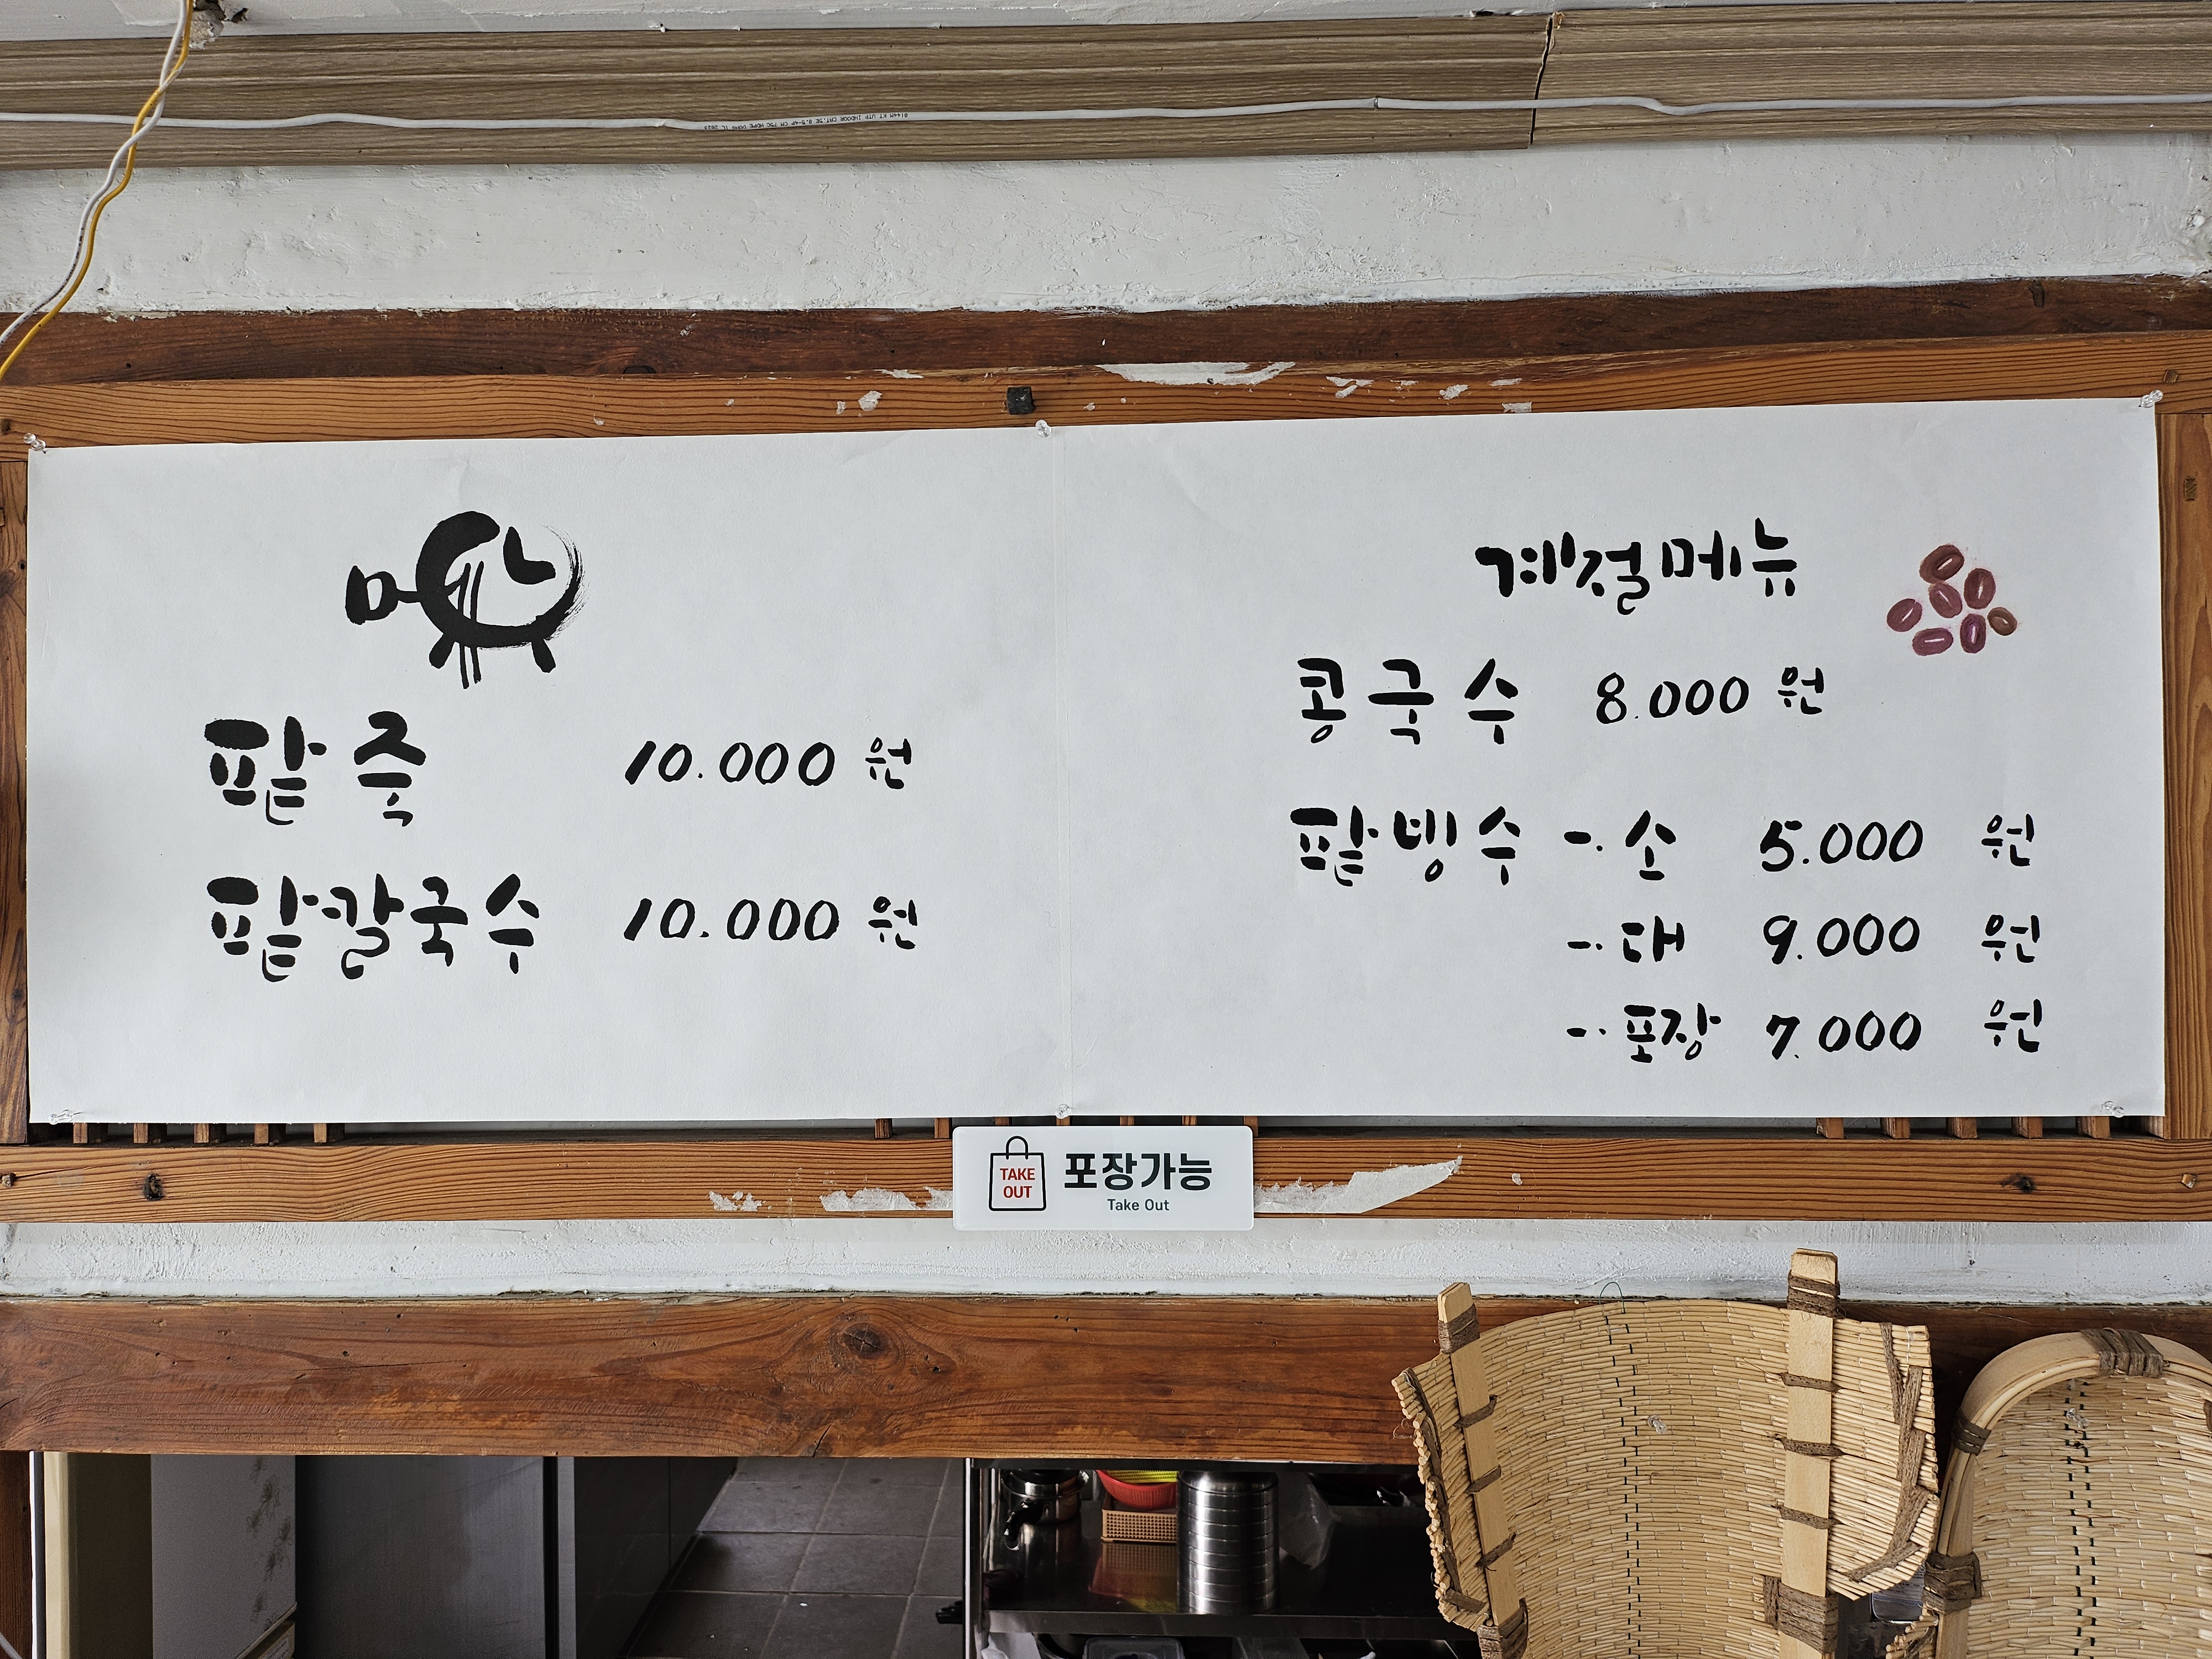 팥죽 10.000 원
팥칼국수 10.000 원
계절메뉴
콩국수 8.000 원
팥빙수 -. 소 5.000 원
-. 대 9.000 원
-. 포장 7.000 원
TAKE
OUT
포장가능
Take Out